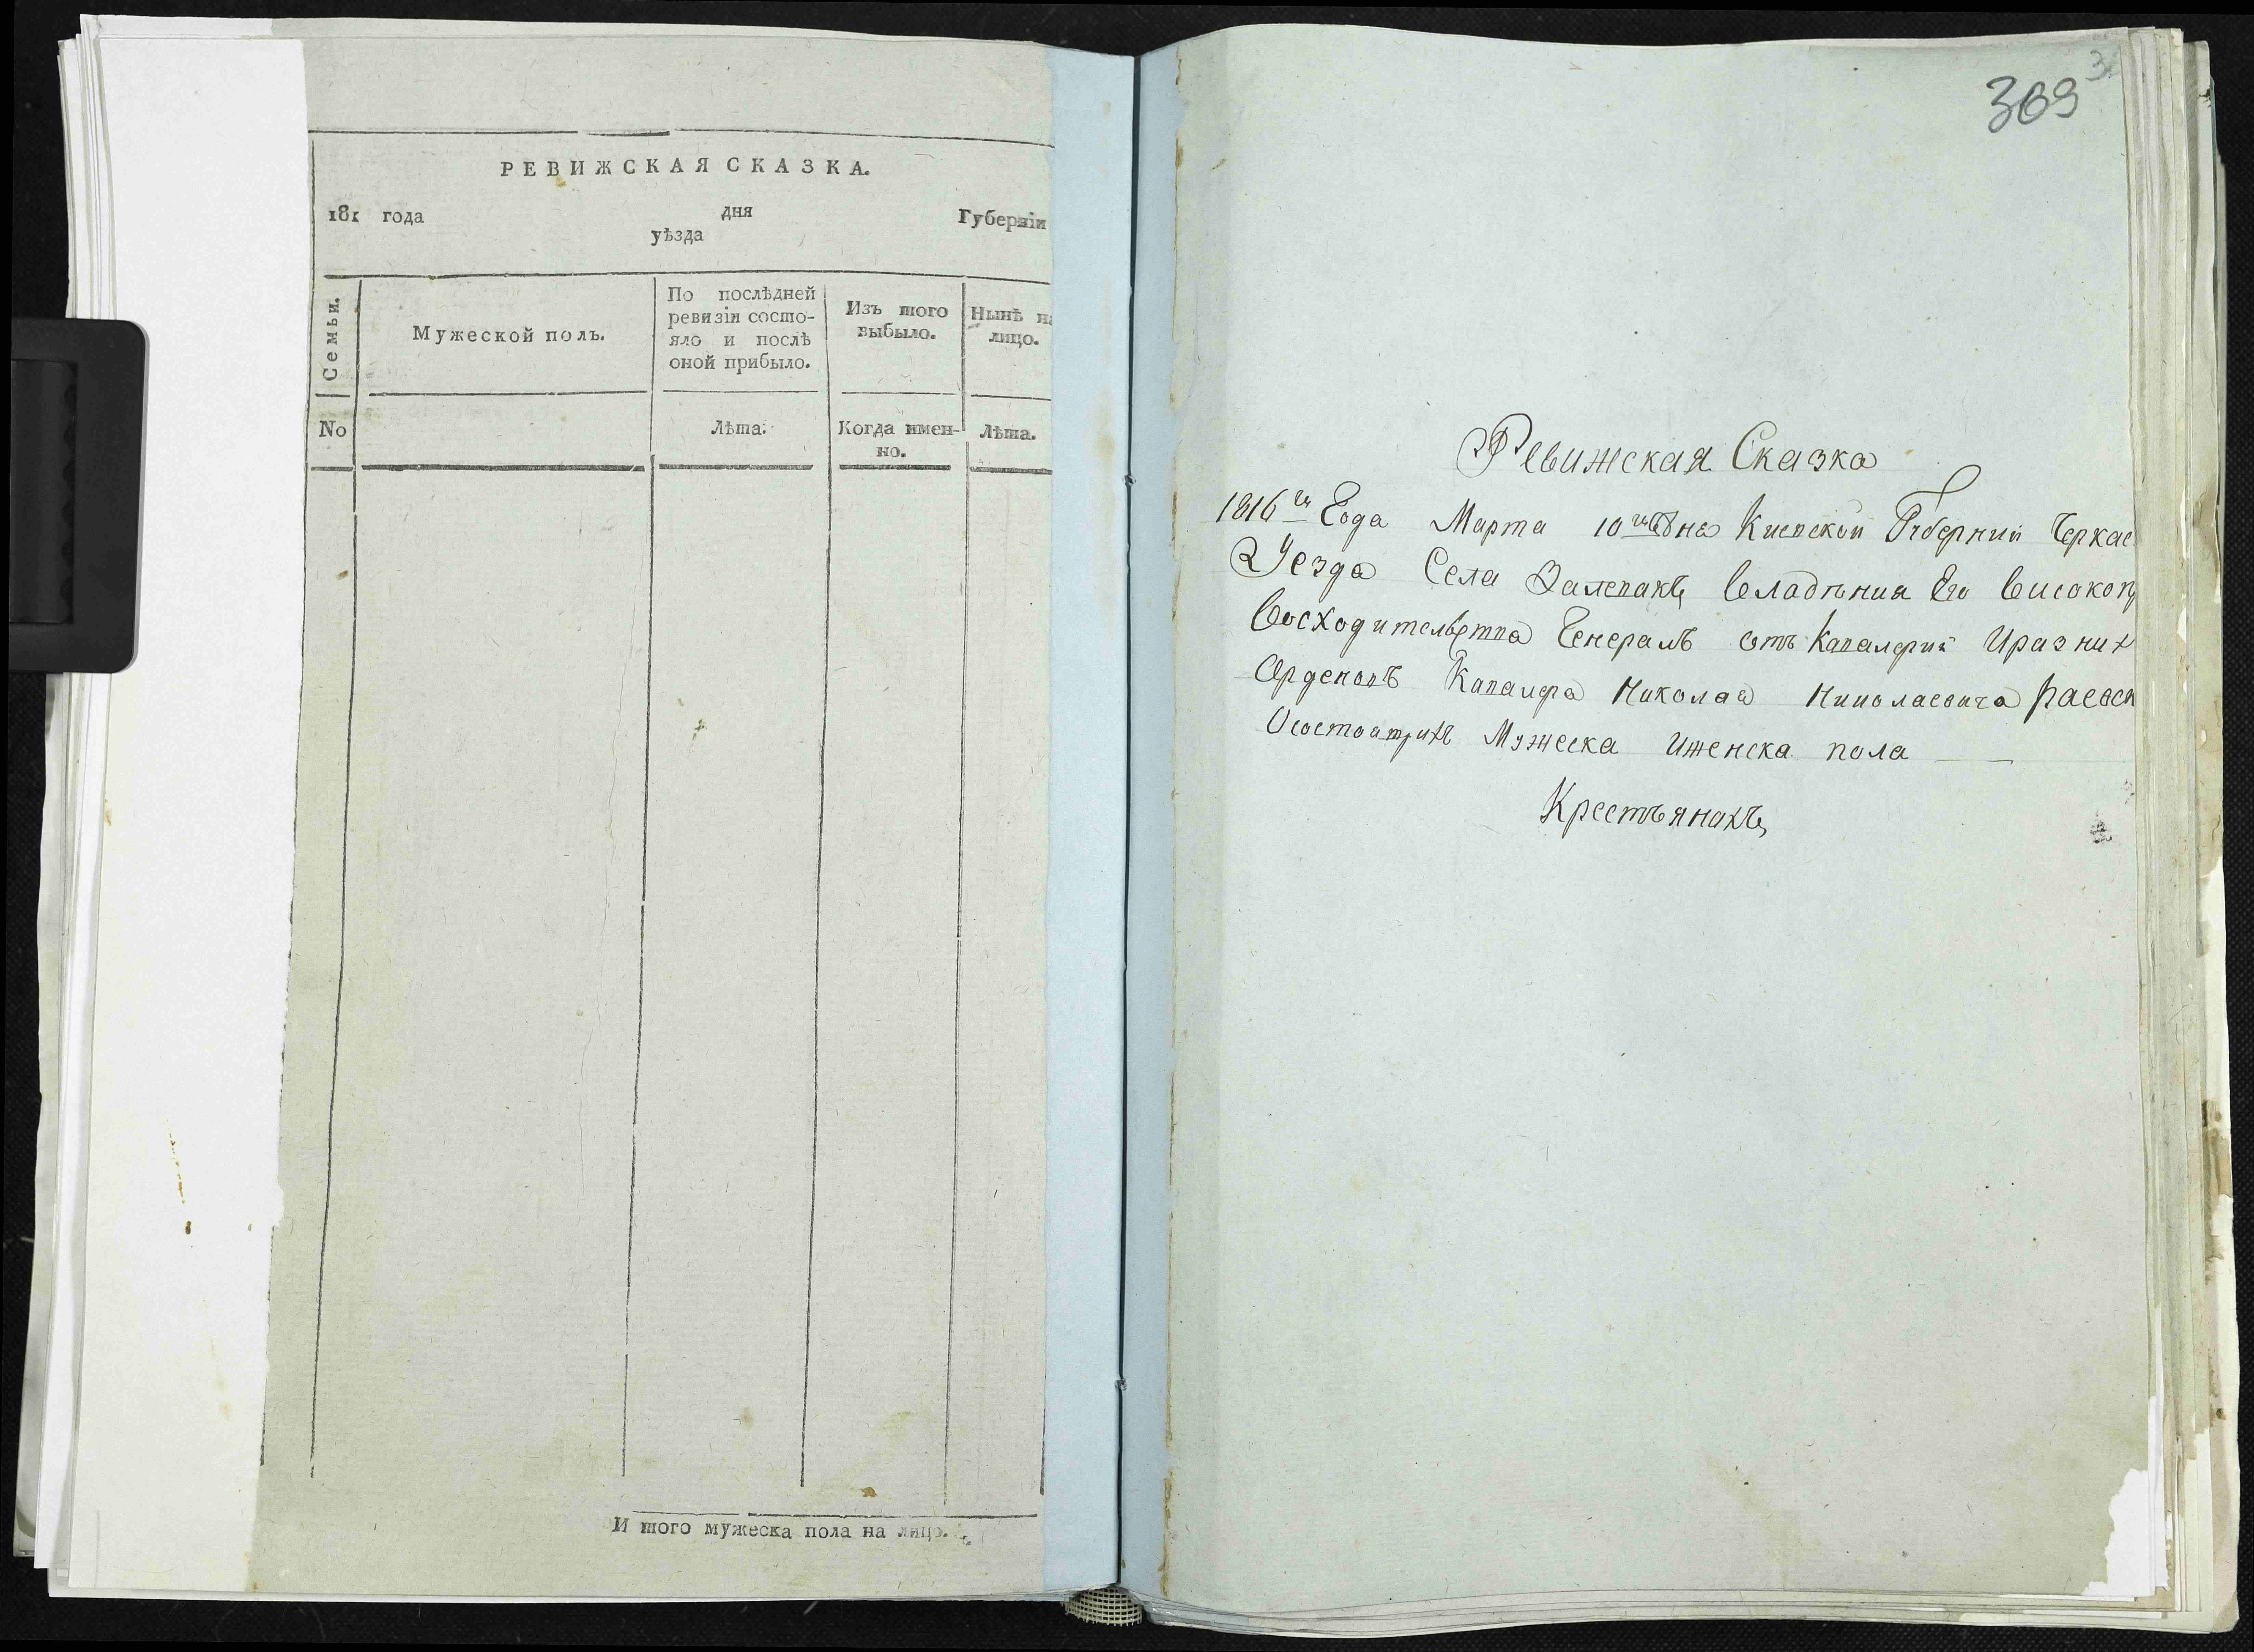 РЕВИЖСКАЯ СКАЗКА.
181 года дня Губерніи
уѣзда
Семьи.
Мужеской полъ.
По послѣдней
ревизіи состо-
яло и послѣ
оной прибыло.
Изъ того
выбыло.
Нынѣ на
лицо.
No
Лѣта.
Когда имен-
но.
Лѣта.
И того мужеска пола на лицо.
309
3
Ревижская Сказка
1816го Года Марта 10го дня Киевской Губернии Черкас
Уезда Села Залевакъ Владѣния Его Високоп
Восходительства Генералъ отъ Кавалерии Иразних
Орденовъ Кавалера Николая Николаевича Раевск
Осостоящихъ Мужеска Иженска пола
Крестьянахъ